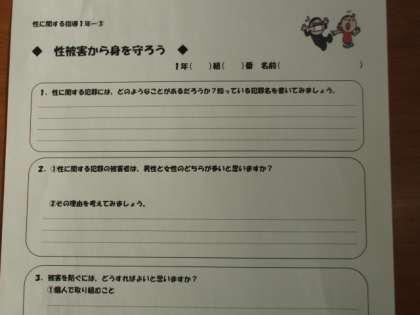 性に関する指導1年－③
◆ 性被害から身を守ろう ◆
1年( )組( )番 名前( )
1．性に関する犯罪には、どのようなことがあるだろうか？知っている犯罪名を書いてみましょう。
2．①性に関する犯罪の被害者は、男性と女性のどちらが多いと思いますか？
②その理由を考えてみましょう。
3．被害を防ぐには、どうすればよいと思いますか？
①個人で取り組むこと